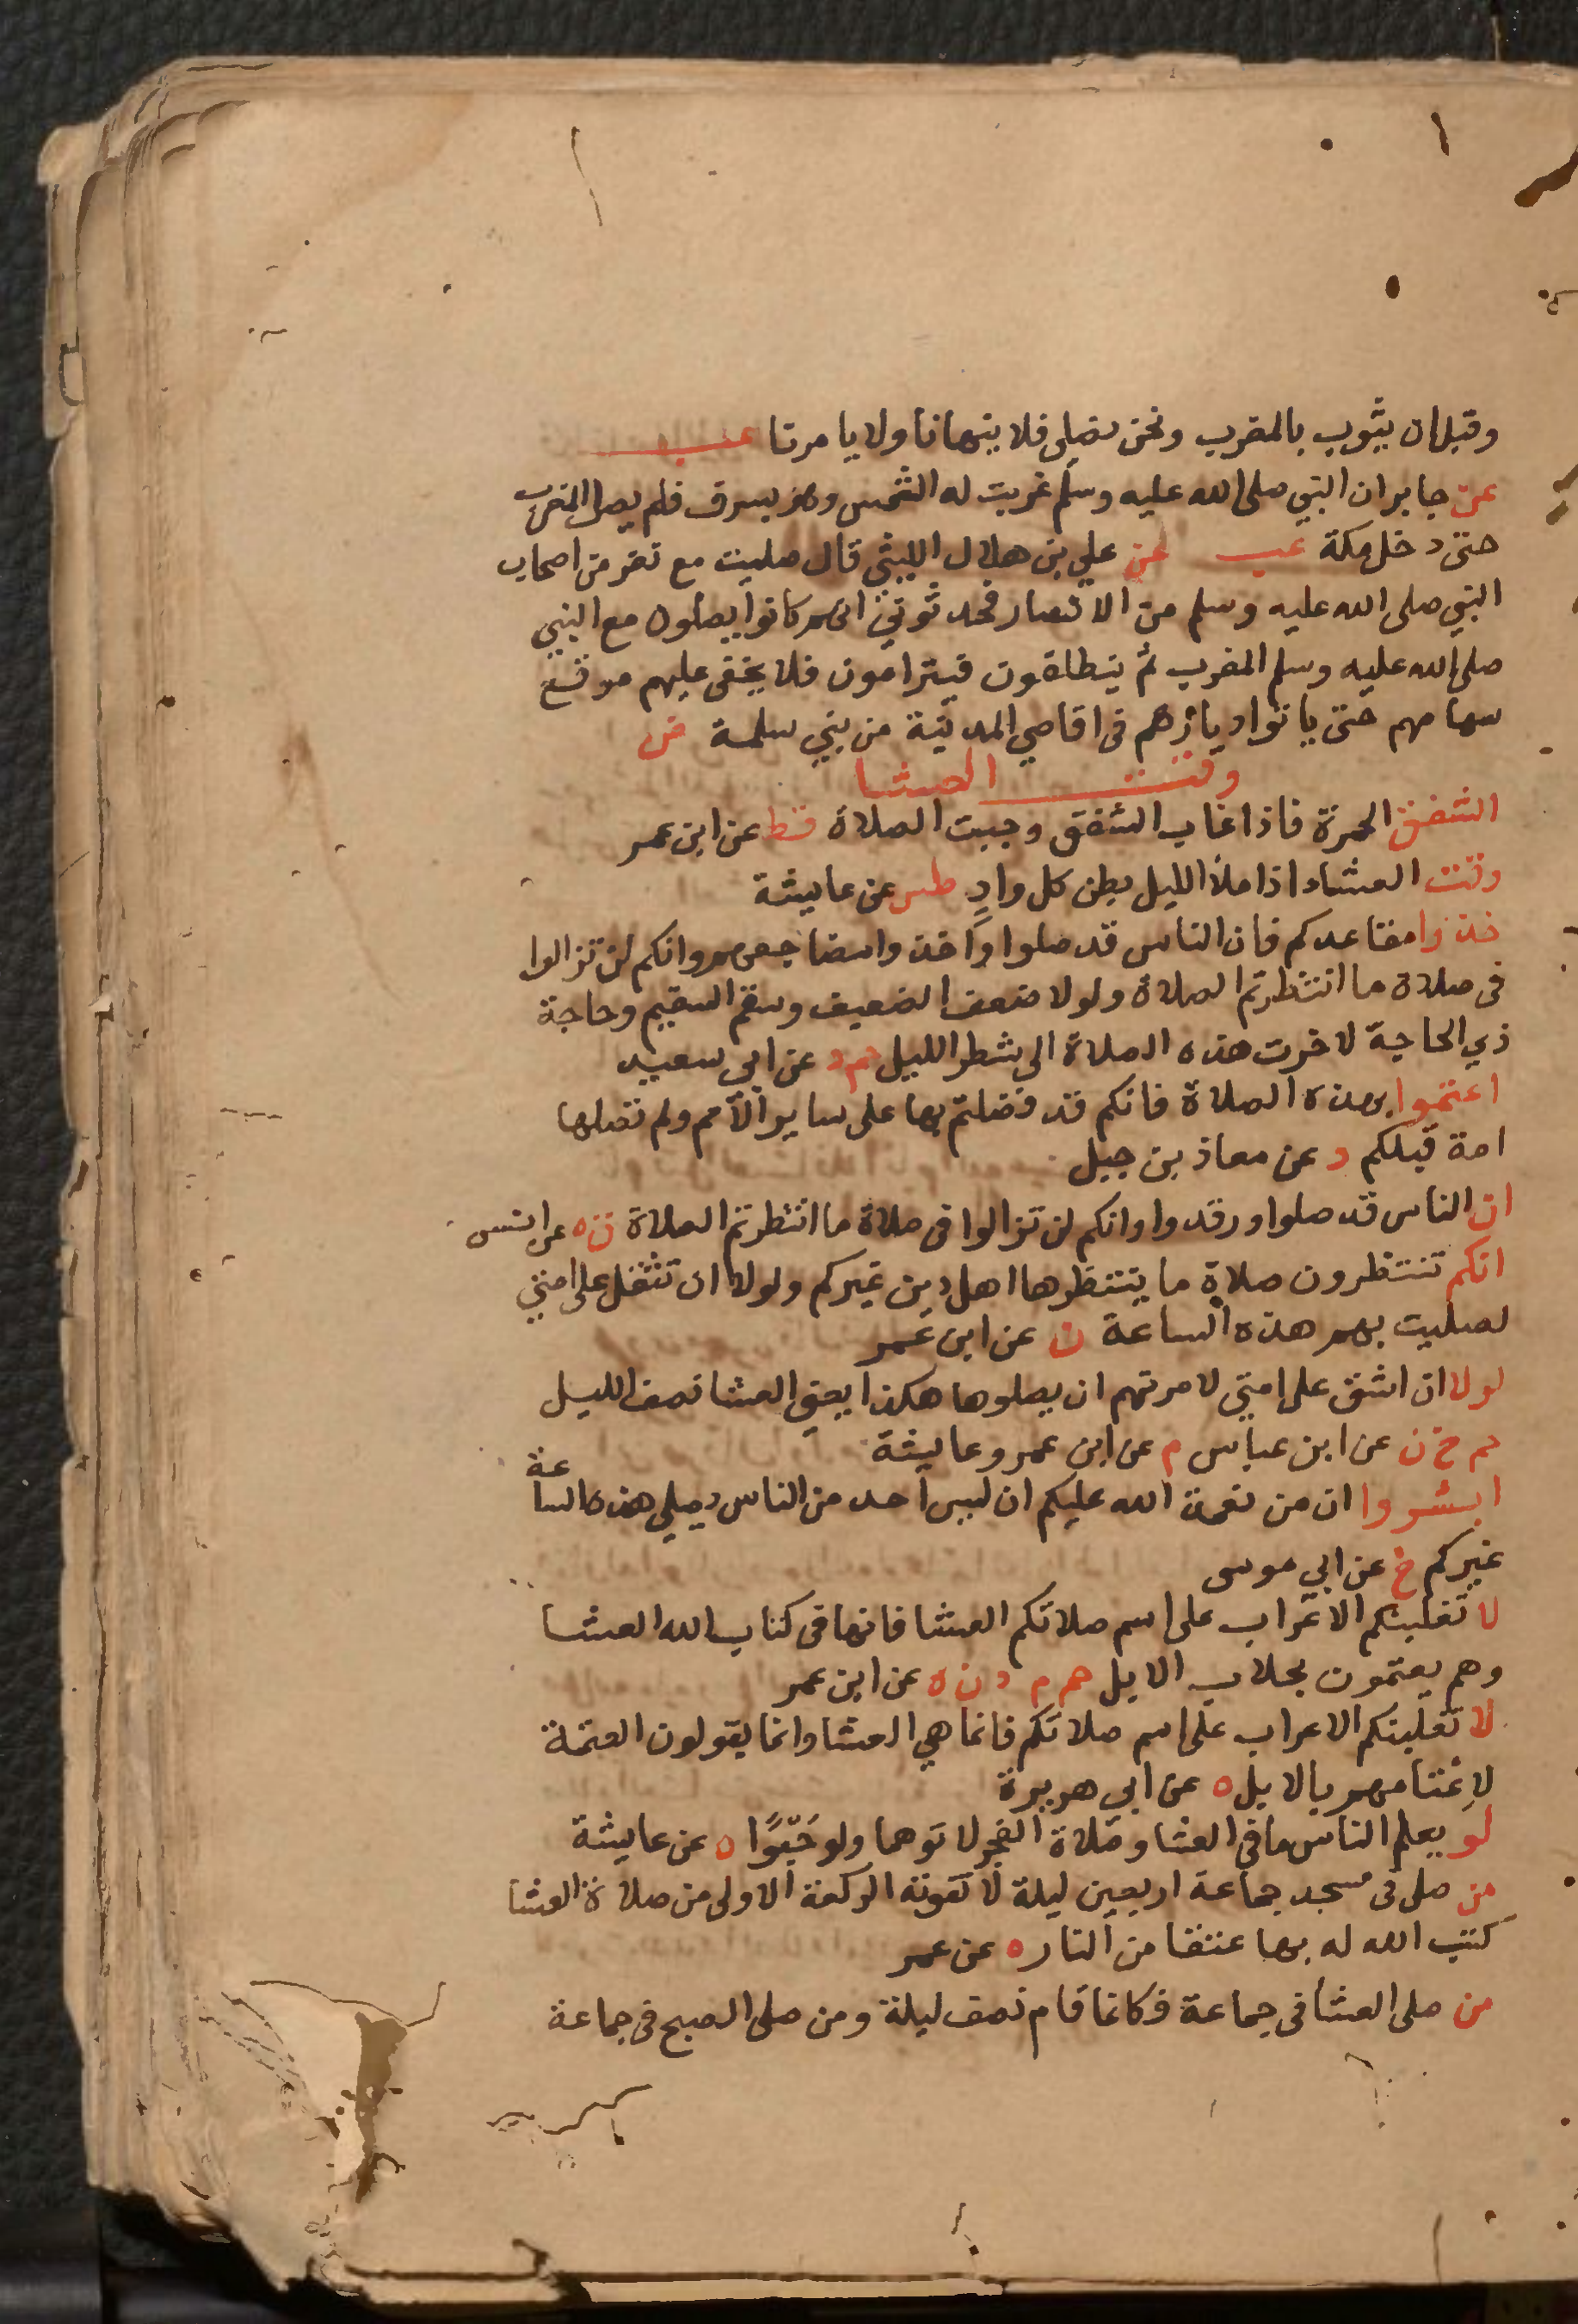 وقبل ان يثوب بالمغرب ونحن نصلي فلا ينهانا ولا يامرنا عب
عن جابر ان النبي صلى الله عليه وسلم غربت له الشمس وهو بسرف فلم يصل المغرب
حتى دخل مكة عب عن علي بن هلال الليثي قال صليت مع نفر من اصحاب
النبي صلى الله عليه وسلم من الانصار فحدثوني انهم كانوا يصلون مع النبي
صلى الله عليه وسلم المغرب ثم ينطلقون فيترامون فلا يخفى عليهم موقع
سهامهم حتى ياتوا ديارهم فى اقاصي المدينة من بني سلمة ض
وقت العشا
الشفق الحمرة فاذا غاب الشفق وجبت الصلاة قط عن ابن عمر
وقت العشاء اذا ملأ الليل بطن كل وادٍ طس عن عايشة
خذوا مقاعدكم فان الناس قد صلوا واخذوا مضاجعهم وانكم لن تزالوا
فى صلاة ما انتظرتم الصلاة ولولا ضعف الضعيف وسقم السقيم وحاجة
ذي الحاجة لاخرت هذه الصلاة الى شطر الليل حم د عن ابي سعيد
اعتموا بهذه الصلاة فانكم قد فضلتم بها على ساير الأمم ولم تصلها
امة قبلكم د عن معاذ بن جبل
ان الناس قد صلوا ورقدوا وانكم لن تزالوا فى صلاة ما انتظرتم الصلاة ن ه عن انس
انكم تنتظرون صلاة ما ينتظرها اهل دين غيركم ولولا ان تثقل على امتي
لصليت بهم هذه الساعة ن عن ابن عمر
لولا ان اشق على امتي لامرتهم ان يصلوها هكذا يعني العشا نصف الليل
حم خ ن عن ابن عباس م عن ابن عمر وعايشة
ابشروا ان من نعمة الله عليكم ان ليس احد من الناس يصلي هذه الساعة
غيركم خ عن ابي موسى
لا تغلبنكم الاعراب على اسم صلاتكم العشا فانها فى كتاب الله العشا
وهم يعتمون بحلاب الابل حم م د ن ه عن ابن عمر
لا تغلبنكم الاعراب على اسم صلاتكم فانما هي العشا وانما يقولون العتمة
لاِعْتامهم بالابل ه عن ابي هريرة
لو يعلم الناس ما في العشا وصلاة الفجر لاتوهما ولو حَبْوًا ه عن عايشة
من صلى فى مسجد جماعة اربعين ليلة لا تفوته الركعة الاولى من صلاة العشا
كتب الله له بها عتقا من النار ه عن عمر
من صلى العشا فى جماعة فكانما قام نصف ليلة ومن صلى الصبح فى جماعة